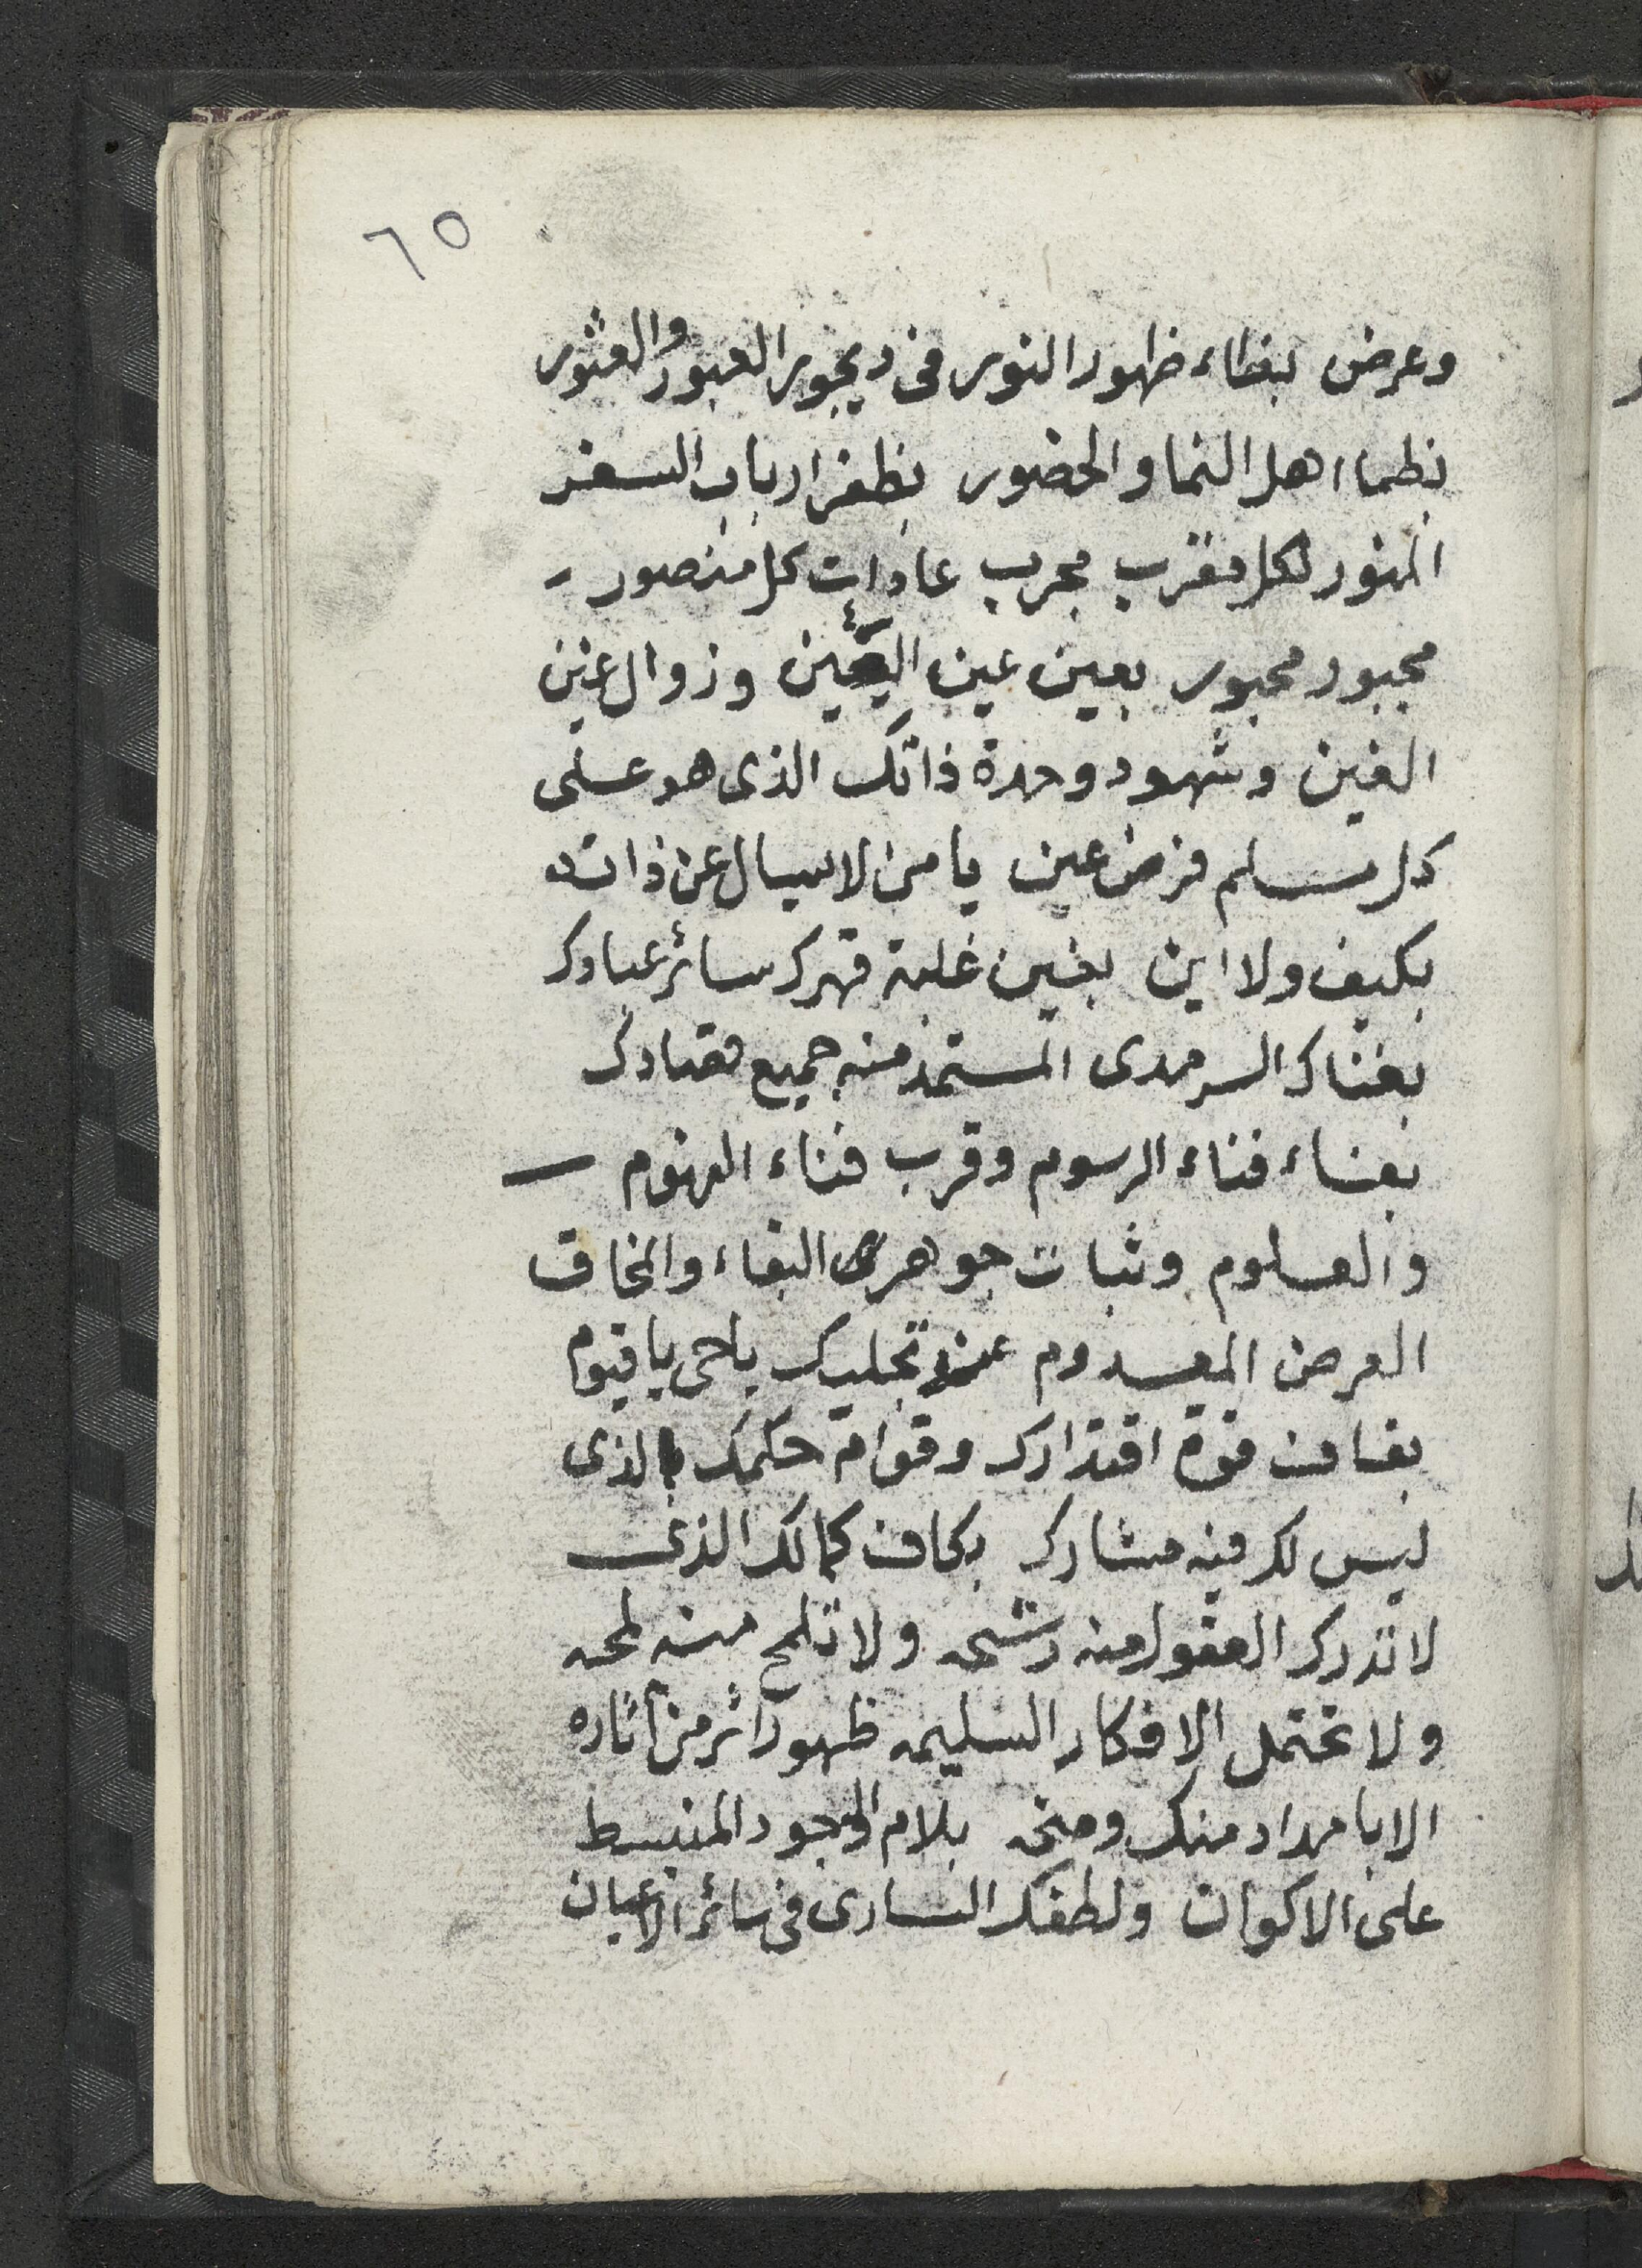 ٦٥
وعرض بغطاء ظهور النور فى ديجور العبور والعثور
بظما اهل النما والحضور بظفر ارباب السفر
المنور لكل مقرب مجرب عادات كل منصور
مجبور محبور بعين عين اليقين وزوال غين
الغين وشهود وحدة ذاتك الذى هو على
كل مسلم فرض عين يا من لا يسال عن ذاته
بكيف ولا اين بغين غلبة قهرك سائر عبادك
بغناك السرمدى المستمد منه جميع
بفناء فناء الرسوم وقرب فناء الفهوم
والعلوم وثبات جوهرى البقاء والمحاق
العرض المعدوم عند تجليك ياحى يا قيوم
بقاف قوة اقتدارك وقوام حكمك الذى
ليس لك فيه مشارك بكاف كمالك الذى
لا تدرك العقول منه رشحه ولا تلمح منه لمحه
ولا تحتمل الافكار السليمه ظهور اثر من آثاره
الا بامداد منك ومنحه بلام الوجود المنبسط
على الاكوان ولطفك السارى فى سائر الاعيان